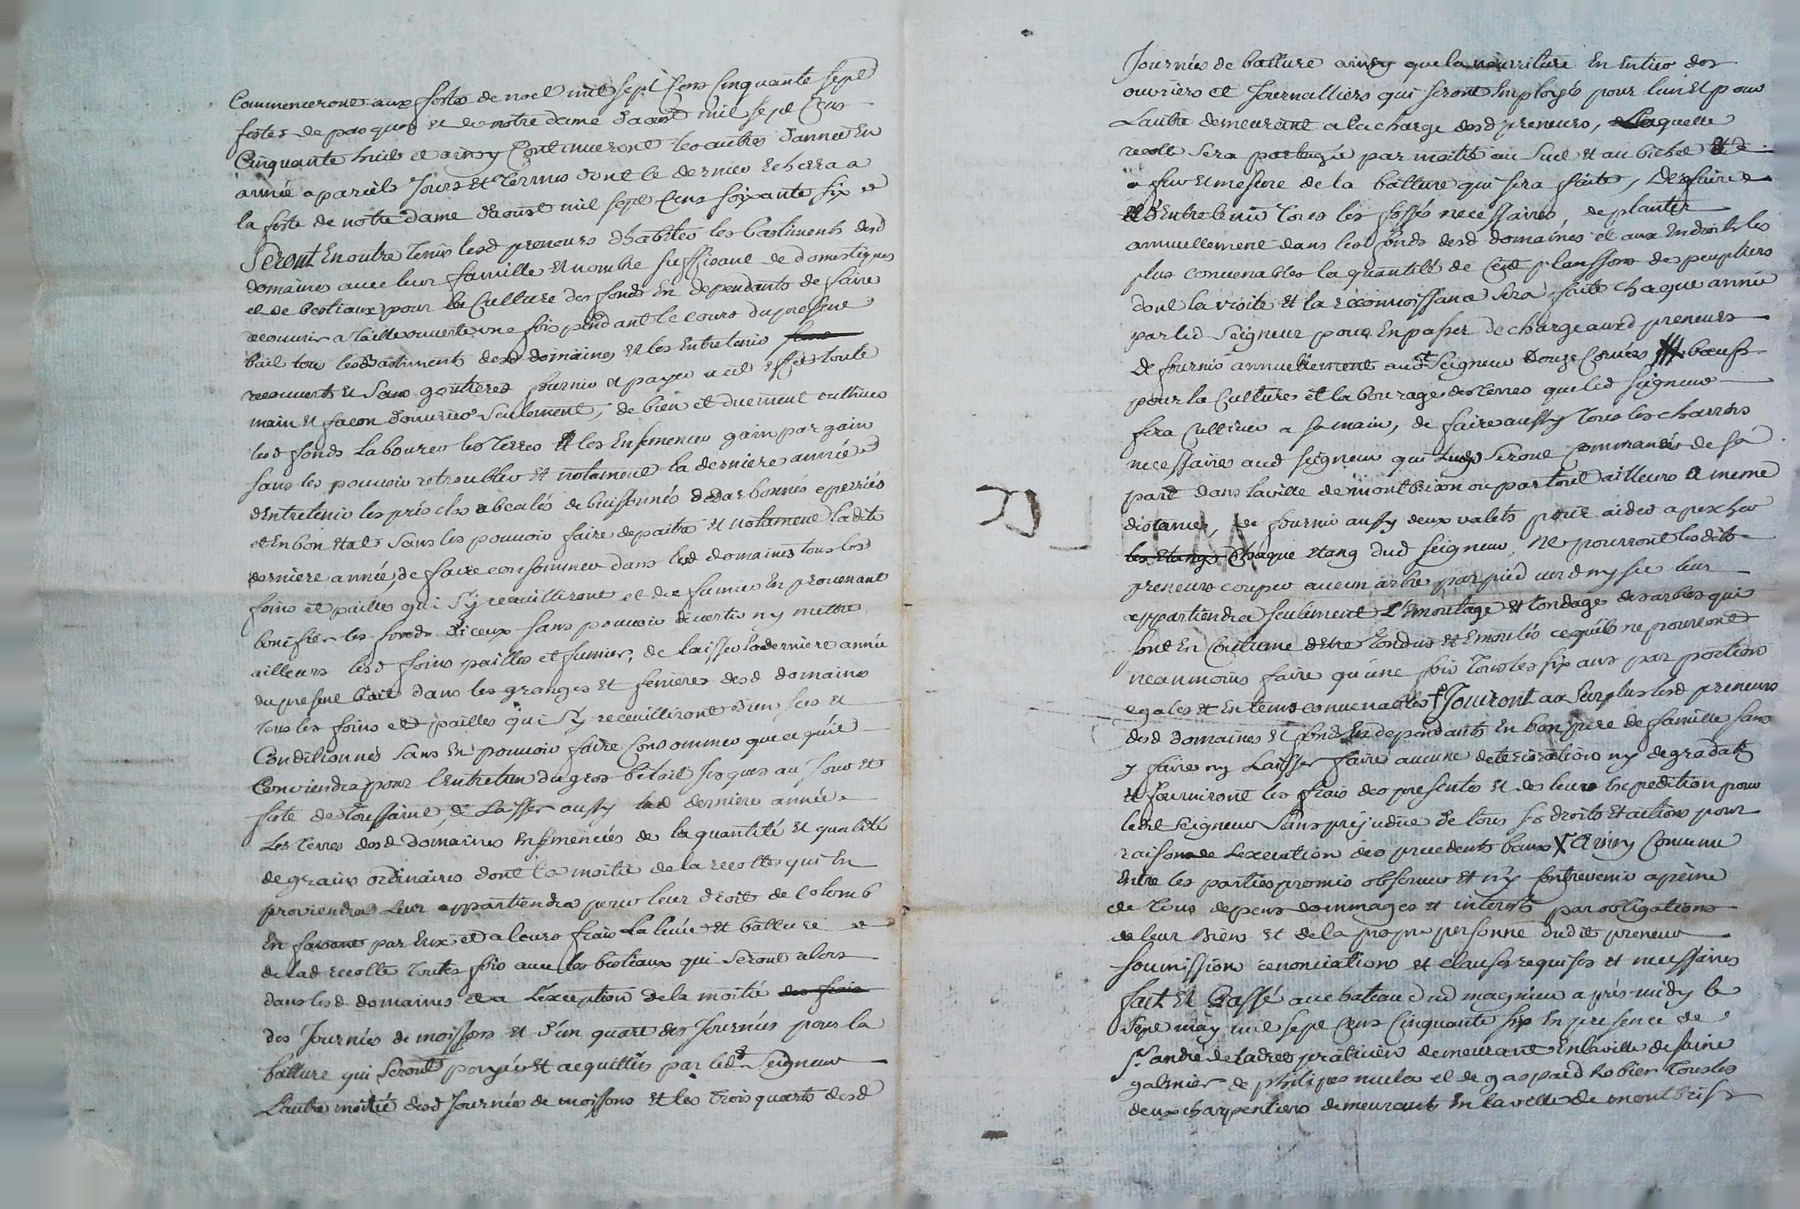 Commenceront aux festes de noel mil sept Cens Cinquante sept
festes de pasques et de notre dame d'aoust mil sept Cens
Cinquante huit et ainsy Continueront les autres d'année en
année a pareils Jours et Termes dont le dernier echerra a
la feste de notre dame d'aoust mil sept Cens soixante six et
Seront En outre Tenus lesd preneurs d'habiter les bastiments desd
domaines avec leur famille et nombre suffisant de domestiques
et de bestiaux pour la Culture des fonds En dependants de faire
recouvrir a Taille ouverte une fois pendant le cours du present
bail tous les bastiments desd domaines et les Entretenir
recouverts et sans goutieres fournir et payer a cet effet toute
main et façon d'ouvrier seulement, de bien et duement cultiver
lesd fonds Labourer les Terres et les Ensemencer gain par gain
sans les pouvoir retroubler et notament la derniere année
d'Entretenir les prés clos
et En bon Etat sans les pouvoir faire depaitre et notament ladite
derniere année, de faire consommer dans lesd domaines tous les
foins et pailles qui s'y receuilliront et des fumiers En provenant
bonifier les fonds d'Iceux sans pouvoir divertir ny mettre
ailleurs lesd foins pailles et fumier, de laisser la derniere année
du present bail dans les granges et fenieres desd domaines
Tous les foins et pailles qui s'y receuilliront d'un sec et
Conditionnés sans En pouvoir faire Consommer que ce qu'il
Conviendra pour l'entretien du gros betail jusques au Jour et
feste de Toussaint, de Laisser aussy lad derniere année
Les Terres desd domaines Ensemencés de la quantité et qualité
de grains ordinaires dont la moitié de la recolte qui En
proviendra Leur appartiendra pour leur droit de Colomb
En faisant par Eux et a leurs frais La levée et batture
de lad recolte toutes fois avec les bestiaux qui seront alors
dans lesd domaines et a l'exception de la moitié des frais
des Journées de moissons et d'un quart des Journées pour la
batture qui seront payés et acquittés par led Seigneur
L'autre moitié desd Journées de moissons et les Trois quarts desd
Journées de batture ainsy que la nourriture En Entier des
ouvriers et Journalliers qui seront Employés pour l'un et pour
L'autre demeurant a la charge desd preneurs, Laquelle
recolte sera partagée par moitié au sueil et au bichet
a fur et mesure de la batture qui sera faite, De faire
et d'Entretenir Tous les fossés necessaires, de planter
annuellement dans les fonds desd domaines et aux Endroits les
plus convenables la quantité de Cent planssons de peupliers
dont la visite et la reconnoissance sera faite chaque année
par led Seigneur pour En passer decharge auxd preneurs
De fournir annuellement aud Seigneur Douze Corvées bœufs
pour la Culture et labourage des Terres que led seigneur
fera Cultiver a sa main, de faire aussy Tous les charrois
necessaires aud seigneur qui seront commandés de sa
part dans la ville de montbrison ou partout ailleurs a meme
distance, de fournir aussy deux valets pour aider a pescher
les Etangs Chaque Etang dud seigneur, Ne pourront lesdits
preneurs couper aucun arbre par pied verd ny sec leur
appartiendra seulement L'Emontage et tondage des arbres qui
sont En Coutume d'etre Tondus et Emontés ce qu'ils ne pourront
neanmoins faire qu'une fois Tous les six ans par portions
egales et En tems convenables Jouiront au surplus lesd preneurs
desd domaines et fonds En dependants En bon pere de famille sans
y faire ny Laisser faire aucune deterioration ny degradation
et fourniront les frais des presentes et de leur Expedition pour
ledit Seigneur sans prejudice de tous ses droits et actions pour
raison de L'execution des precedents baux Ainsy Convenu
Entre les parties promis observer et n'y Contrevenir a peine
de Tous depens dommages et interets par obligations
de leur Biens et de la propre personne dudit preneur
soumissions renonciations et clauses requises et necessaires
fait et Passé au chateau dud magnieu apres midy le
sept may mil sept Cens Cinquante six En presence de
Sr andré praticien demeurant En la ville de saint
galmier de philipes et de gaspard Robier Tous les
deux charpentiers demeurant En la ville de montbrison